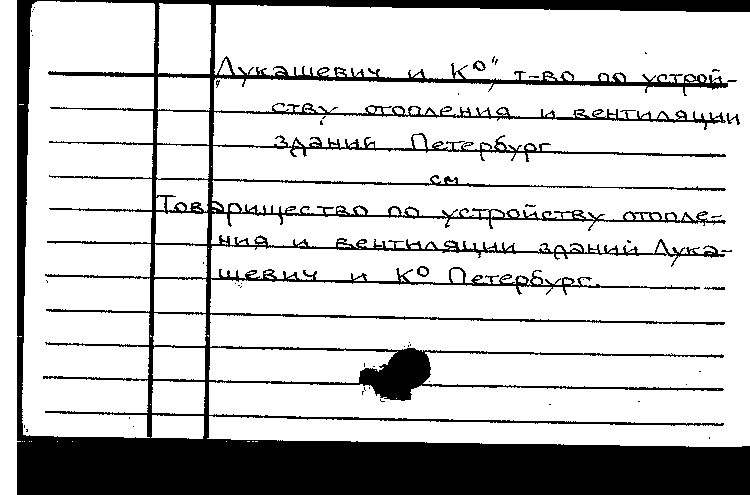 „Лукашевич и К⁰", т-во по устрой-
ству отопления и вентиляции
зданий Петербург
см
Товарищество по устройству отопле-
ния и вентиляции зданий Лука-
шевич и К⁰ Петербург.